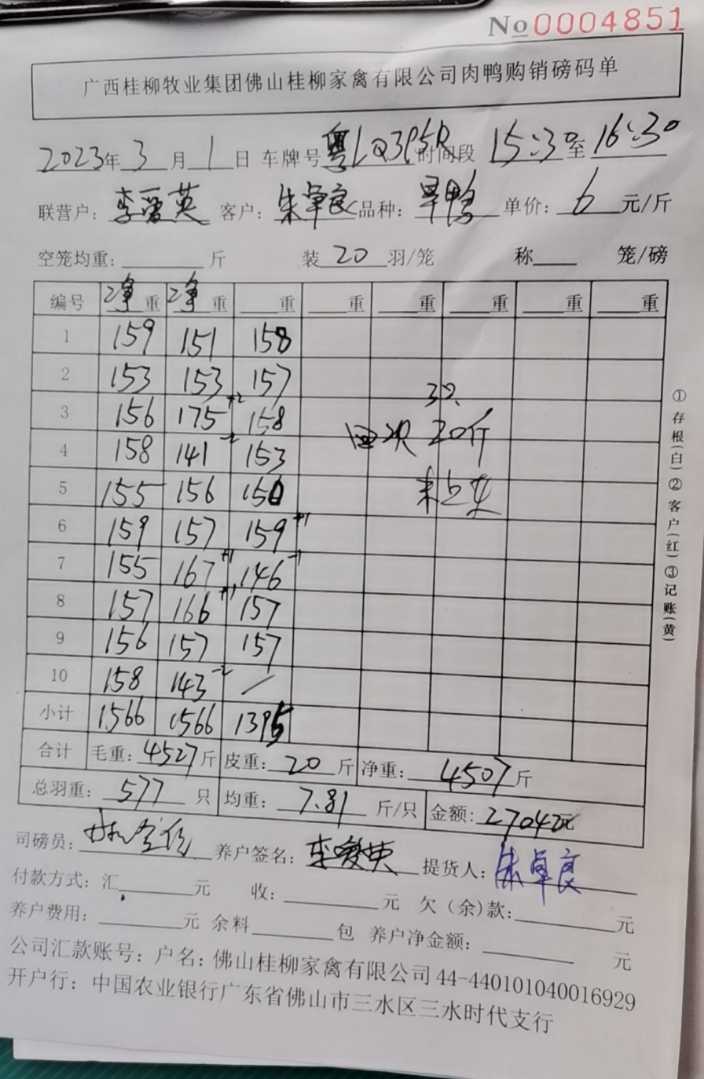 No 0004851
广西桂柳牧业集团佛山桂柳家禽有限公司肉鸭购销磅码单
2023年 3 月 1 日 车牌号 粤LQ3P5R 时间段 15:30 至 16:30
联营户： 李爱英 客户： 朱卓良 品种： 旱鸭 单价： 6 元/斤
空笼均重： 斤 装 20 羽/笼 称 笼/磅
编号 净重 净重 重 重 重 重 重 重
1 159 151 158
2 153 153 157
3 156 175 +2 158
4 158 141 -2 153
5 155 156 150
6 159 157 159 +1
7 155 167 +1 146 -1
8 157 166 +1 157
9 156 157 157
10 158 143 -2 /
小计 1566 1566 1395
四次 20斤
合计 毛重： 4527 斤 皮重： 20 斤 净重： 4507 斤
总羽重： 577 只 均重： 7.81 斤/只 金额： 27042元
司磅员： 养户签名： 李爱英 提货人： 朱卓良
付款方式：汇 元 收： 元 欠（余）款： 元
养户费用： 元 余料 包 养户净金额： 元
公司汇款账号：户名：佛山桂柳家禽有限公司 44-440101040016929
开户行：中国农业银行广东省佛山市三水区三水时代支行
①存根(白)②客户(红)③记账(黄)